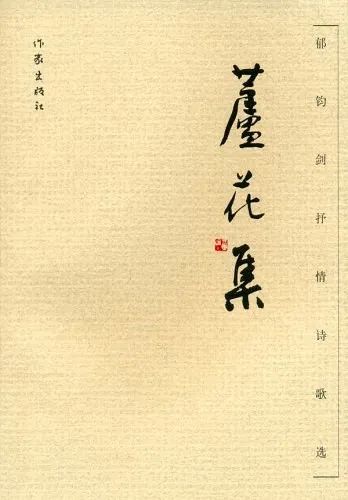 郁钧剑抒情诗歌选
蘆花集
作家出版社